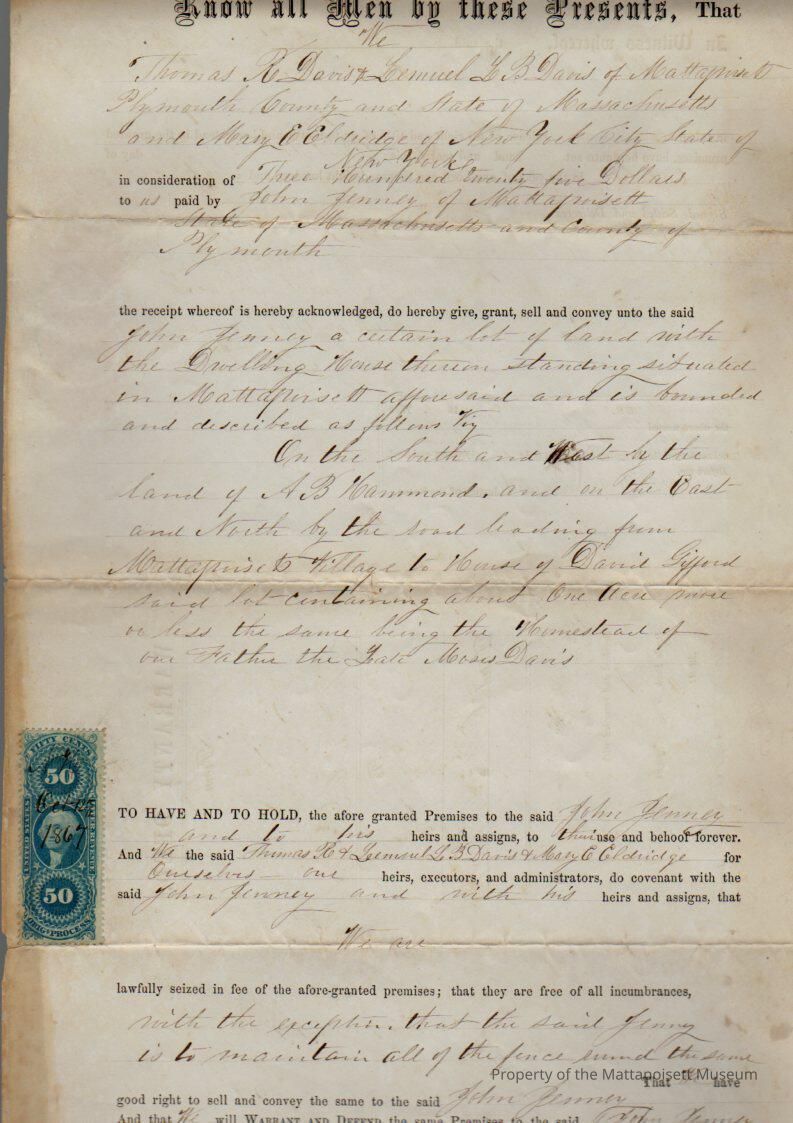 Know all Men by these Presents, That
We
Thomas R Davis & Lemuel L B Davis of Mattapoisett
Plymouth County and State of Massachusetts
and Mary E Eldridge of New York City State of
New York
in consideration of Three Hundred twenty five Dollars
to us paid by John Jenney of Mattapoisett
State of Massachusetts and County of
Plymouth
the receipt whereof is hereby acknowledged, do hereby give, grant, sell and convey unto the said
John Jenney a certain lot of land with
the Dwelling House thereon standing situated
in Mattapoisett afforesaid and is bounded
and described as follows Viz
On the South and West by the
land of A B Hammond. and on the East
and North by the road leading from
Mattapoisett Village to House of David Gifford
said lot containing about One Acre more
or less the same being the Homestead of
our Father the Late Moses Davis
FIFTY CENTS
50
Oct
1867
UNITED STATES
REVENUE
50
ORIG. PROCESS
TO HAVE AND TO HOLD, the afore granted Premises to the said John Jenney
and to his heirs and assigns, to their use and behoof forever.
And We the said Thomas R & Lemuel L B Davis & Mary E Eldridge for
Ourselves our heirs, executors, and administrators, do covenant with the
said John Jenney and with his heirs and assigns, that
We are
lawfully seized in fee of the afore-granted premises; that they are free of all incumbrances,
with the exception. that the said Jenney
is to maintain all of the fence round the same
Property of the Mattapoisett Museum
That We have
good right to sell and convey the same to the said John Jenney
And that We will WARRANT AND DEFEND the same Premises to the said John Jenney